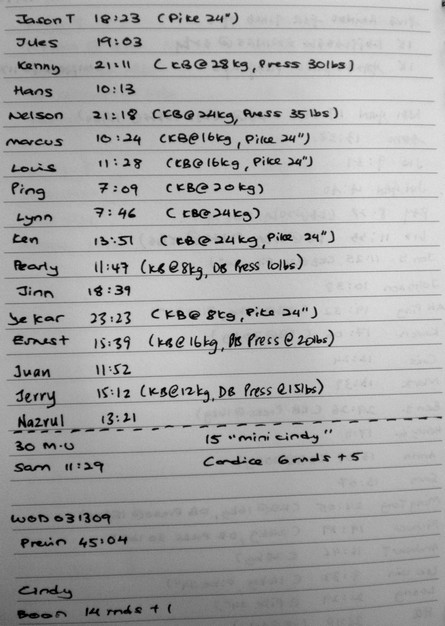 Jason T 18:23 (Pike 24")
Jules 19:03
Kenny 21:11 (KB@28kg, Press 30lbs)
Hans 10:13
Nelson 21:18 (KB@24kg, Press 35lbs)
Marcus 10:24 (KB@16kg, Pike 24")
Louis 11:28 (KB@16kg, Pike 24")
Ping 7:09 (KB@20kg)
Lynn 7:46 (KB@24kg)
Ken 13:51 (KB@24kg, Pike 24")
Pearly 11:47 (KB@8kg, DB Press 10lbs)
Jinn 18:39
Ye Kar 23:23 (KB@8kg, Pike 24")
Ernest 15:39 (KB@16kg, DB Press@20lbs)
Juan 11:52
Jerry 15:12 (KB@12kg, DB Press@15lbs)
Nazrul 13:21
30 M-U 15 "mini cindy"
Sam 11:29 Candice 6rnds+5
WOD 031309
Prein 45:04
Cindy
Boon 14 rnds+1